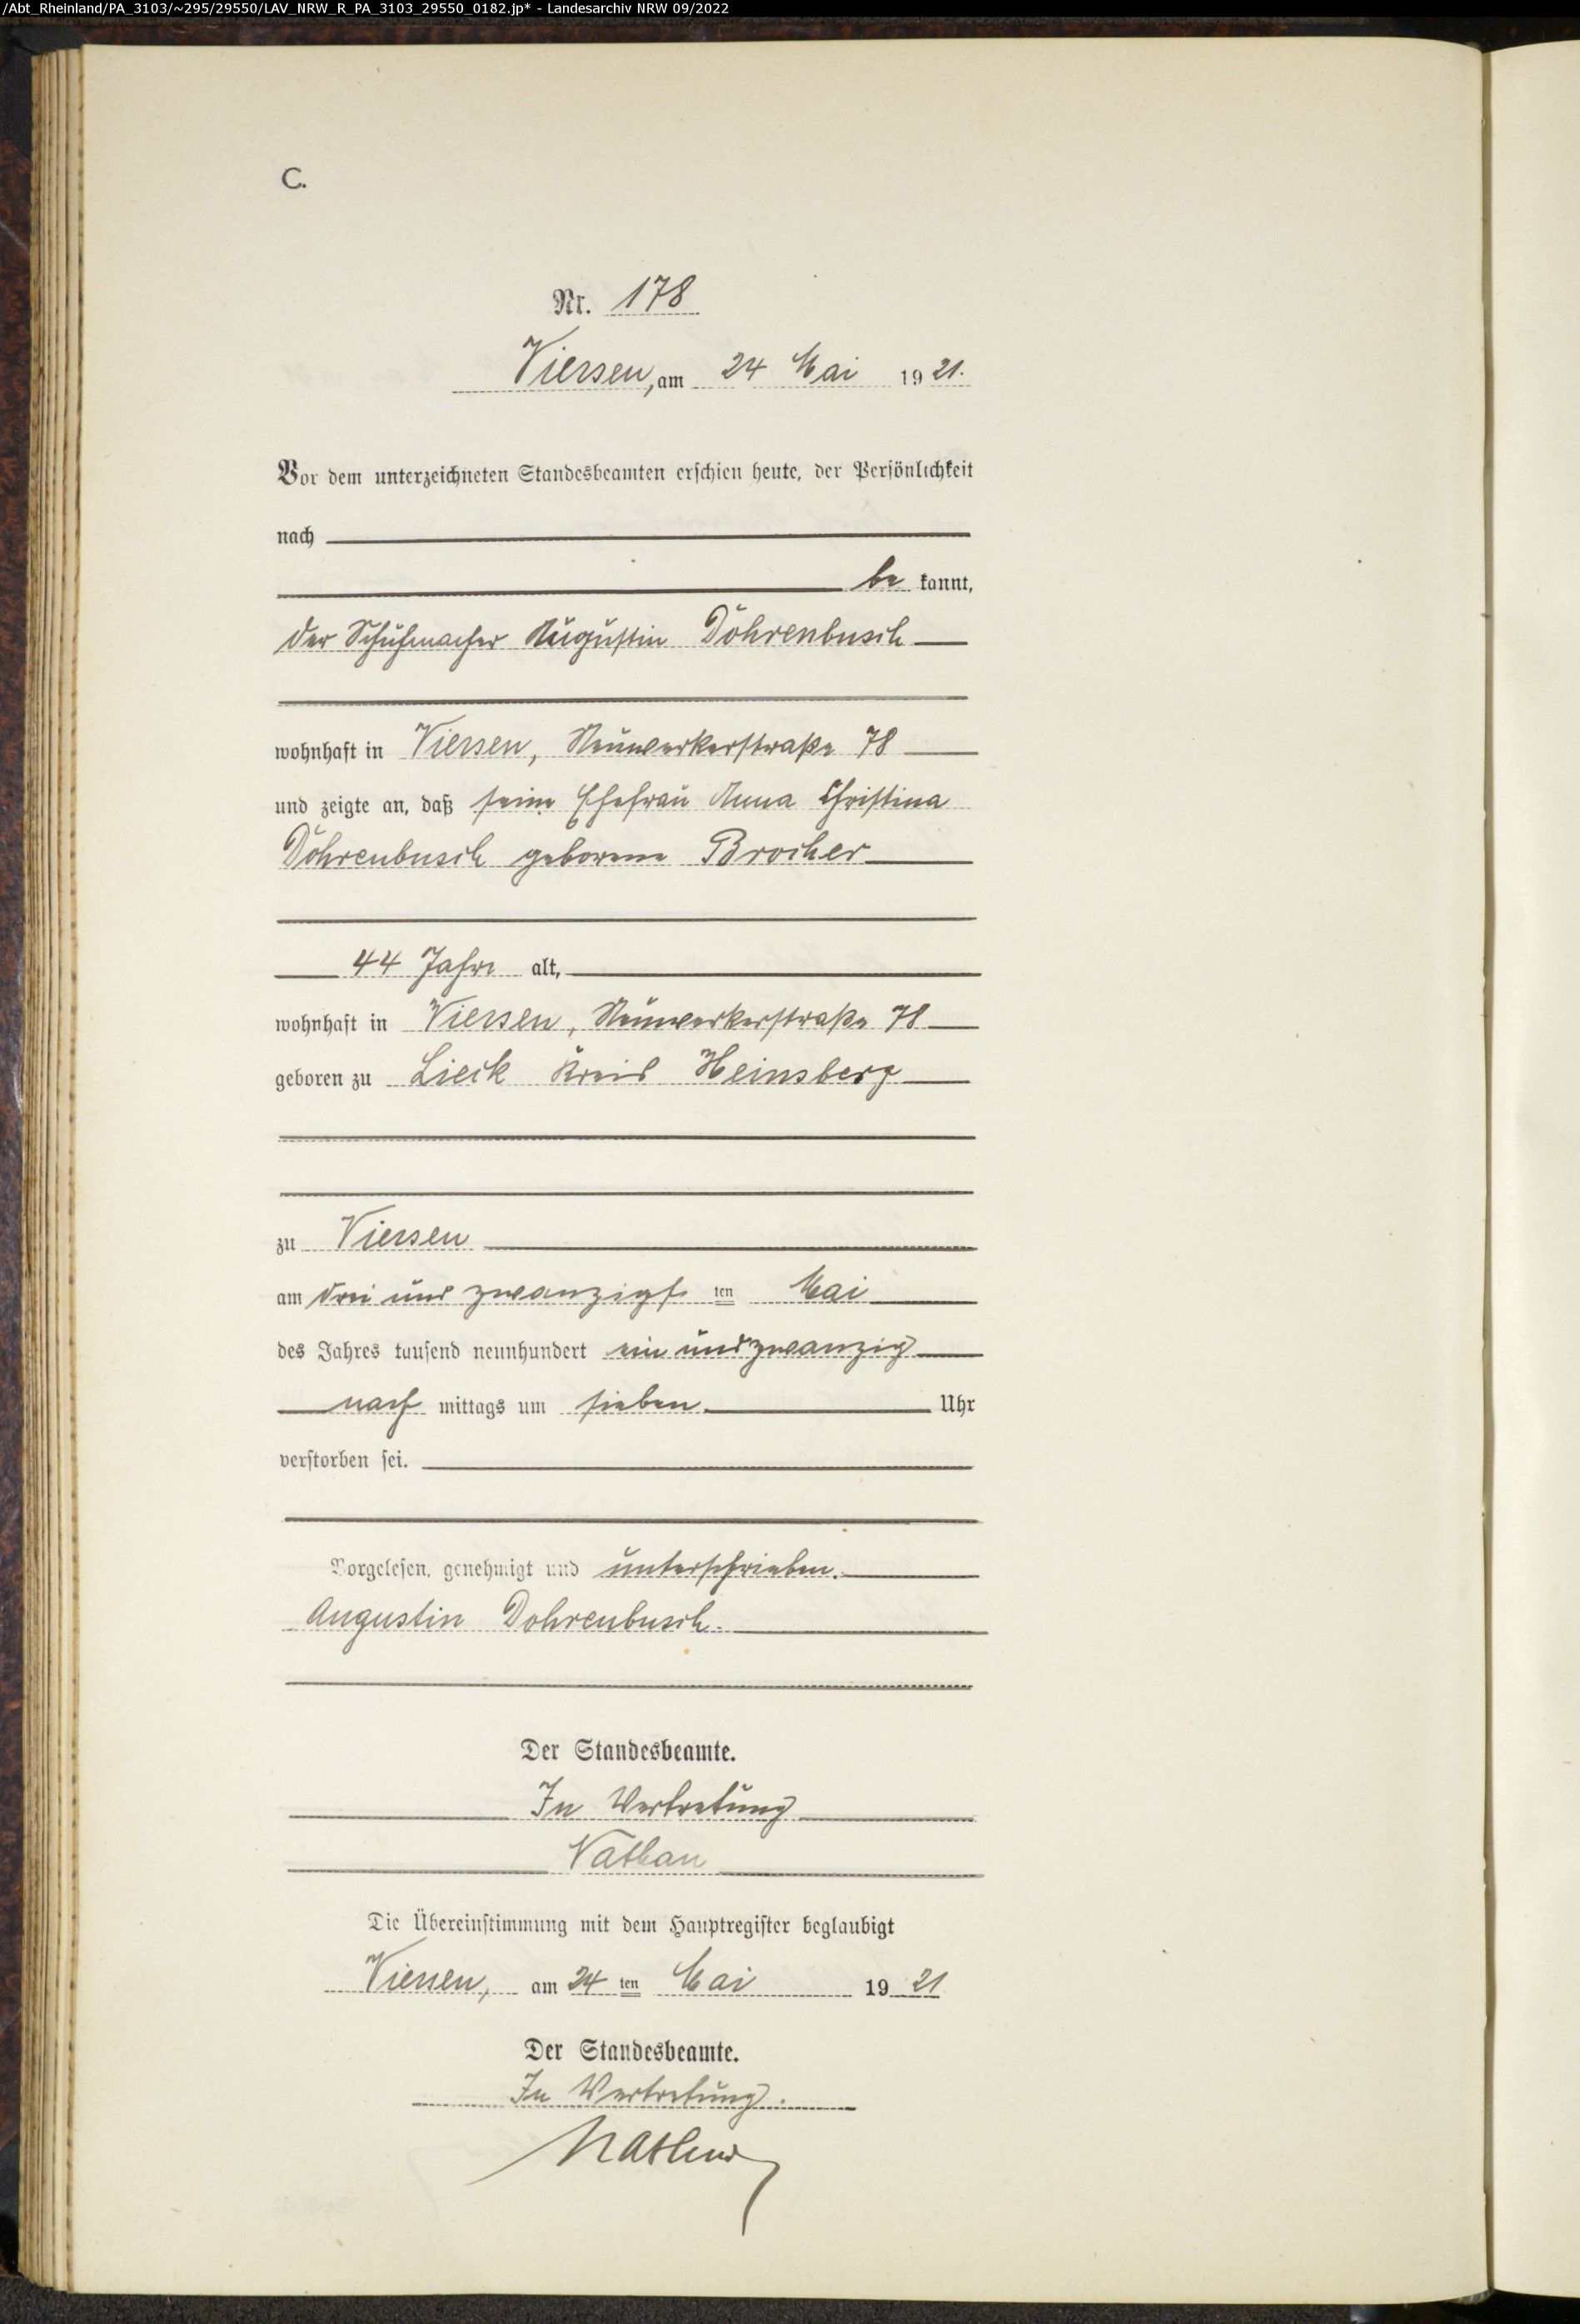 /Abt_Rheinland/PA_3103/~295/29550/LAV_NRW_R_PA_3103_29550_0182.jp* - Landesarchiv NRW 09/2022
C.
Nr. 178
Viersen, am 24 Mai 1921.
Vor dem unterzeichneten Standesbeamten erschien heute, der Persönlichkeit
nach
be kannt,
der Schuhmacher Augustin Döhrenbusch
wohnhaft in Viersen, Neuwerkerstraße 78
und zeigte an, daß seine Ehefrau Anna Christina
Döhrenbusch geborene Brocher
44 Jahre alt,
wohnhaft in Viersen, Neuwerkerstraße 78
geboren zu Lieck Kreis Heinsberg
zu Viersen
am drei und zwanzigsten Mai
des Jahres tausend neunhundert ein und zwanzig
nach mittags um sieben Uhr
verstorben sei.
Vorgelesen, genehmigt und unterschrieben.
Augustin Dohrenbusch.
Der Standesbeamte.
In Vertretung
Die Übereinstimmung mit dem Hauptregister beglaubigt
Viersen, am 24 ten Mai 1921
Der Standesbeamte.
In Vertretung.